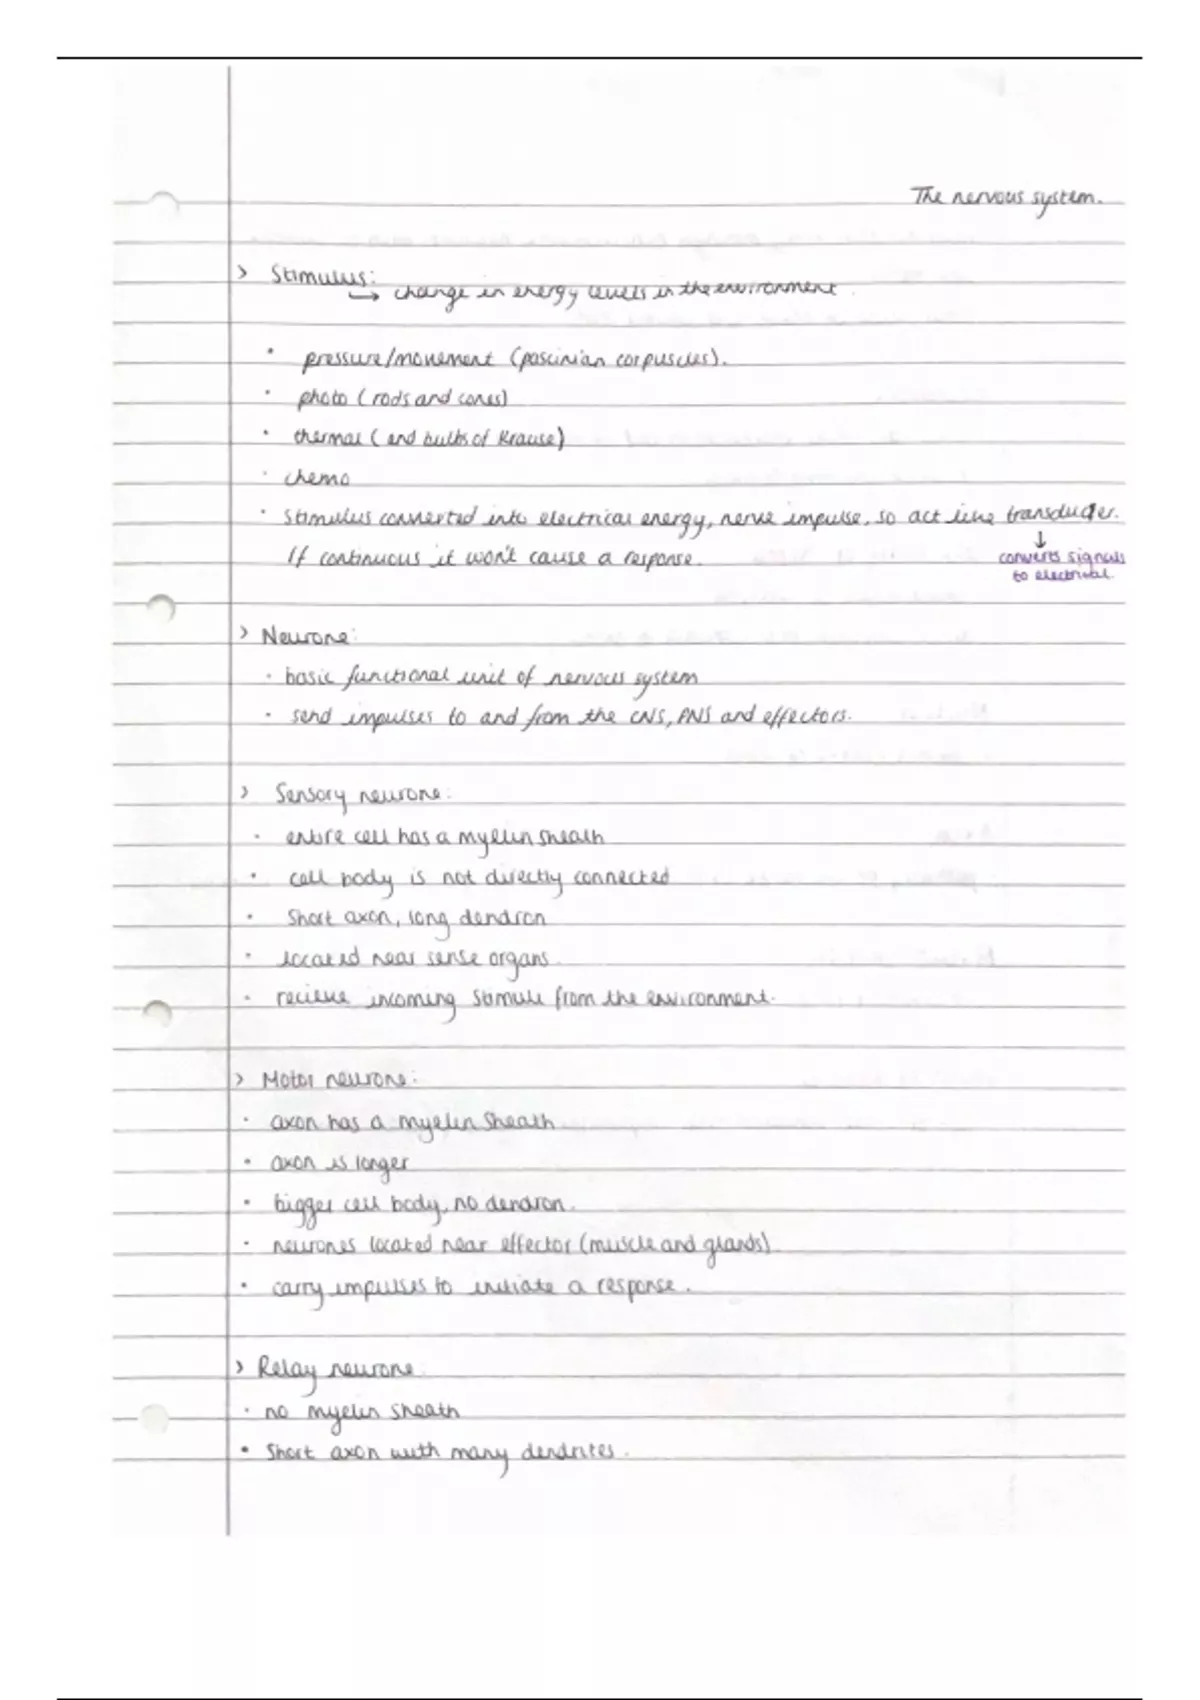 The nervous system.
> Stimulus:
→ change in energy levels in the environment.
• pressure/movement (pascinian corpuscles).
• photo (rods and cones)
• thermal (end bulbs of Krause)
• chemo
• stimulus converted into electrical energy, nerve impulse, so act like transducer.
↓
If continuous it won't cause a response.
converts signals
to electrical.
> Neurone:
• basic functional unit of nervous system
• send impulses to and from the CNS, PNS and effectors.
> Sensory neurone:
• entire cell has a myelin sheath
• cell body is not directly connected
• short axon, long dendron
• located near sense organs.
• recieve incoming stimuli from the environment.
> Motor neurone:
• axon has a myelin sheath
• axon is longer
• bigger cell body, no dendron.
• neurones located near effector (muscle and glands)
• carry impulses to initiate a response.
> Relay neurone:
• no myelin sheath
• short axon with many dendrites.